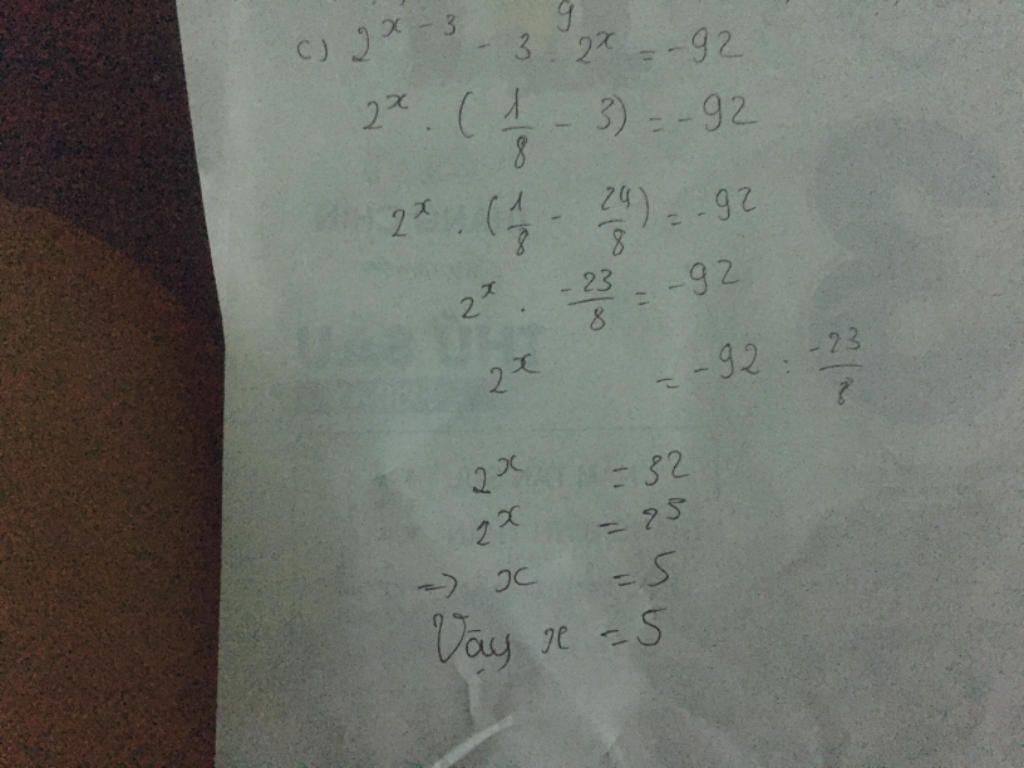 c) 2^{x-3} - 3 . 2^x = -92
2^x . ( \frac{1}{8} - 3) = -92
2^x . (\frac{1}{8} - \frac{24}{8}) = -92
2^x . \frac{-23}{8} = -92
2^x = -92 : \frac{-23}{8}
2^x = 32
2^x = 2^5
=> x = 5
Vậy x = 5